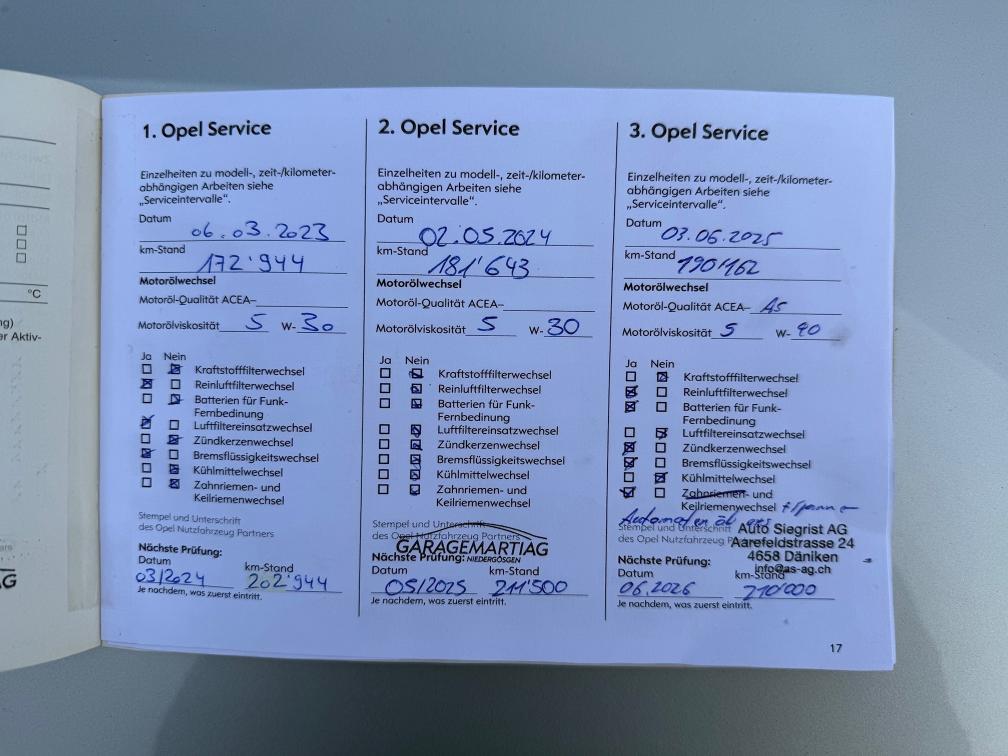 1. Opel Service
Einzelheiten zu modell-, zeit-/kilometer-
abhängigen Arbeiten siehe
„Serviceintervalle“.
Datum 06.03.2023
km-Stand 172'944
Motorölwechsel
Motoröl-Qualität ACEA–
Motorölviskosität 5 W- 30
Ja Nein
Kraftstofffilterwechsel
Reinluftfilterwechsel
Batterien für Funk-
Fernbedinung
Luftfiltereinsatzwechsel
Zündkerzenwechsel
Bremsflüssigkeitswechsel
Kühlmittelwechsel
Zahnriemen- und
Keilriemenwechsel
Stempel und Unterschrift
des Opel Nutzfahrzeug Partners
Nächste Prüfung:
Datum km-Stand
03/2024 202'944
Je nachdem, was zuerst eintritt.
2. Opel Service
Einzelheiten zu modell-, zeit-/kilometer-
abhängigen Arbeiten siehe
„Serviceintervalle“.
Datum 02.05.2024
km-Stand 181'643
Motorölwechsel
Motoröl-Qualität ACEA–
Motorölviskosität 5 W- 30
Ja Nein
Kraftstofffilterwechsel
Reinluftfilterwechsel
Batterien für Funk-
Fernbedinung
Luftfiltereinsatzwechsel
Zündkerzenwechsel
Bremsflüssigkeitswechsel
Kühlmittelwechsel
Zahnriemen- und
Keilriemenwechsel
Stempel und Unterschrift
des Opel Nutzfahrzeug Partners
GARAGEMARTIAG
NIEDERGÖSGEN
Nächste Prüfung:
Datum km-Stand
05/2025 211'500
Je nachdem, was zuerst eintritt.
3. Opel Service
Einzelheiten zu modell-, zeit-/kilometer-
abhängigen Arbeiten siehe
„Serviceintervalle“.
Datum 03.06.2025
km-Stand 190'162
Motorölwechsel
Motoröl-Qualität ACEA– A5
Motorölviskosität 5 W- 40
Ja Nein
Kraftstofffilterwechsel
Reinluftfilterwechsel
Batterien für Funk-
Fernbedinung
Luftfiltereinsatzwechsel
Zündkerzenwechsel
Bremsflüssigkeitswechsel
Kühlmittelwechsel
Zahnriemen- und
Keilriemenwechsel
Automaten öl
Stempel und Unterschrift
des Opel Nutzfahrzeug
Auto Siegrist AG
Aarefeldstrasse 24
4658 Däniken
info@as-ag.ch
Nächste Prüfung:
Datum km-Stand
06.2026 210'000
Je nachdem, was zuerst eintritt.
17
°C
er Aktiv-